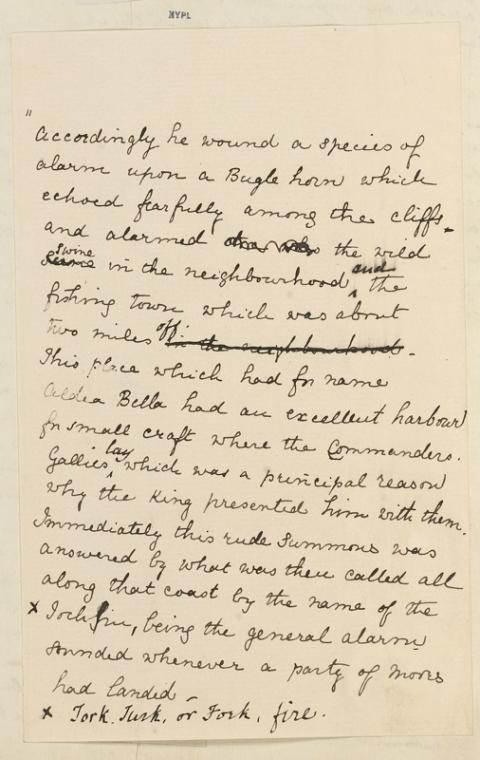 NYPL
"
Accordingly he wound a species of
alarm upon a Bugle horn which
echoed fearfully among the cliffs
and alarmed the wild
swine in the neighbourhood and the
fishing town which was about
two miles off. in the neighbourhood.
This place which had for name
Aldea Bella had an excellent harbour
for small craft where the Commanders
Gallies lay, which was a principal reason
why the King presented him with them.
Immediately this rude summons was
answered by what was then called all
along that coast by the name of the
x being the general alarm
sounded whenever a party of Moors
had landed –
x Tork. Turk, or Fork, fire.